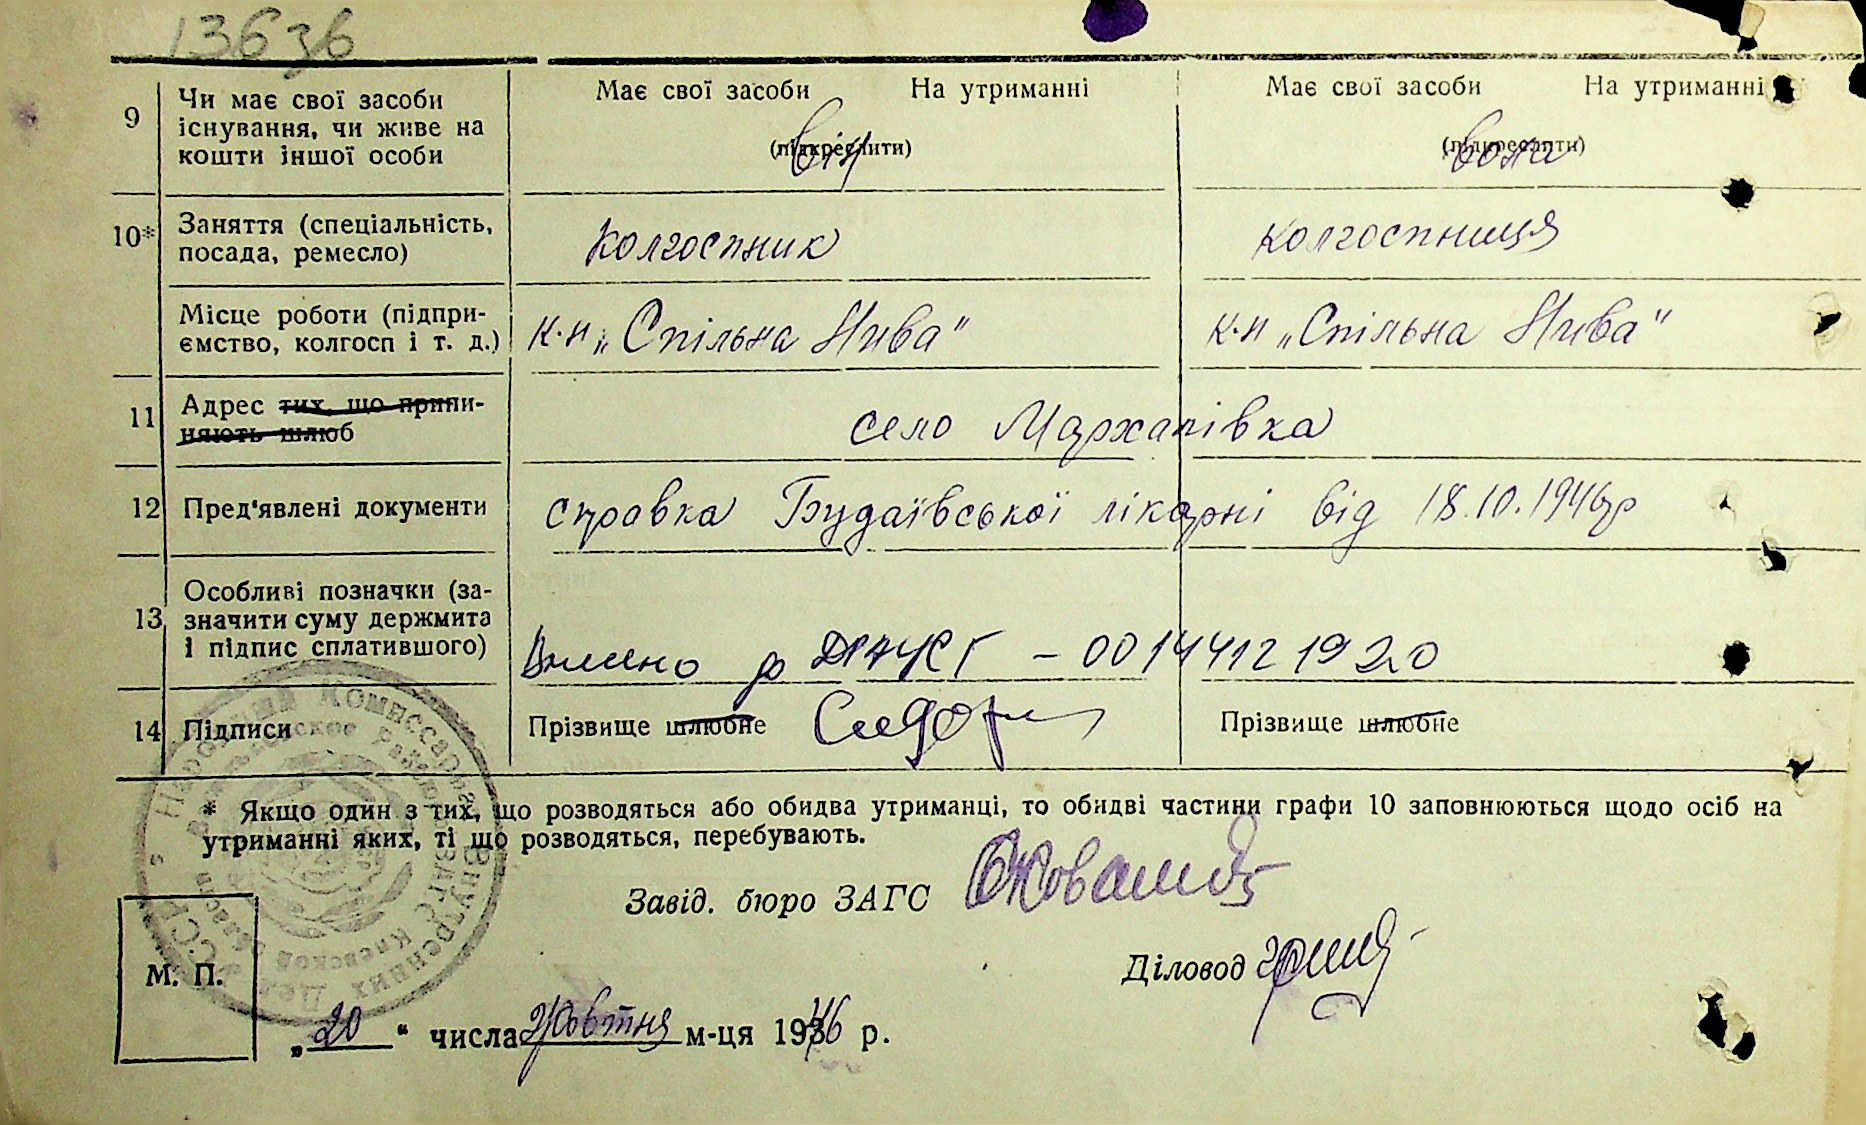 13636
9 Чи має свої засоби існування, чи живе на кошти іншої особи
Має свої засоби На утриманні
(підкреслити)
він
Має свої засоби На утриманні
(підкреслити)
вона
10* Заняття (спеціальність, посада, ремесло)
колгоспник
колгоспниця
Місце роботи (підпри-
ємство, колгосп і т. д.)
к-п „Спільна Нива"
к-п „Спільна Нива"
11 Адрес тих, що припи-
няють шлюб
село Мархалівка
12 Пред'явлені документи
справка Будаївської лікарні від 18.10.1946р
13 Особливі позначки (за-
значити суму держмита
і підпис сплатившого)
Внесено до ДРАЦСГ – 00144121920
14 Підписи
Прізвище шлюбне
Прізвище шлюбне
* Якщо один з тих, що розводяться або обидва утриманці, то обидві частини графи 10 заповнюються щодо осіб на
утриманні яких, ті що розводяться, перебувають.
Завід. бюро ЗАГС
Діловод
М. П.
„20" числа жовтня м-ця 1946 р.
Народный Комиссариат Внутренних Дел УССР
Киевской области